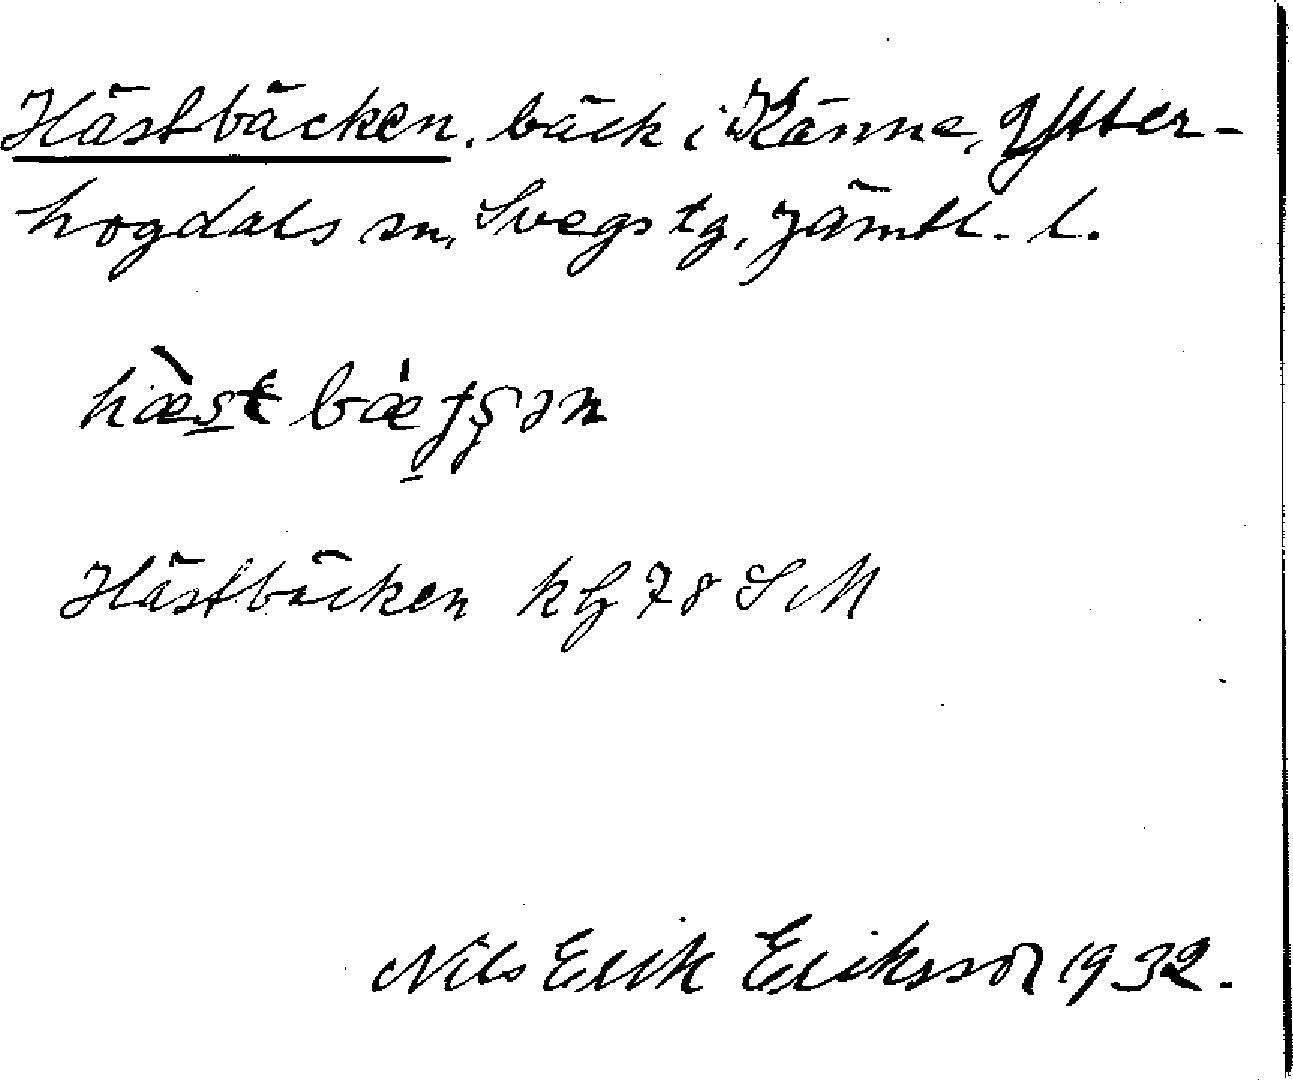 Hästbäcken, bäck i Känne, Ytter-
hogdals sn, Svegs tg, Jämtl. l.
hæ̀st bæ̍ʈʂən
Hästbäcken kfz 78 SM
Nils Erik Eriksson 1932.